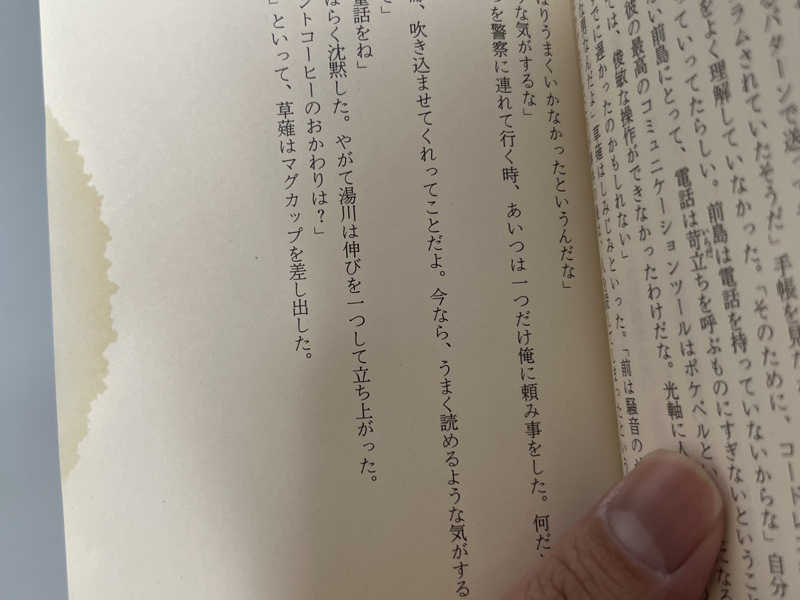 るパターンで送って
ラムされていたそうだ」手帳を見な
をよく理解していなかった。「そのために、コードレ
っていってたらしい。前島は電話を持っていないからな」自分
い前島にとって、電話は苛立ちを呼ぶものにすぎないということ
彼の最高のコミュニケーションツールはポケベルとい
では、俊敏な操作ができなかったわけだな。光軸に人
でに遅かったのかもしれない」
草薙はしみじみといった。「前は騒音の
ぱりうまくいかなかったというんだな」
うな気がするな」
を警察に連れて行く時、あいつは一つだけ俺に頼み事をした。何だ、
、吹き込ませてくれってことだよ。今なら、うまく読めるような気がする
童話をね」
ばらく沈黙した。やがて湯川は伸びを一つして立ち上がった。
ントコーヒーのおかわりは？」
」といって、草薙はマグカップを差し出した。